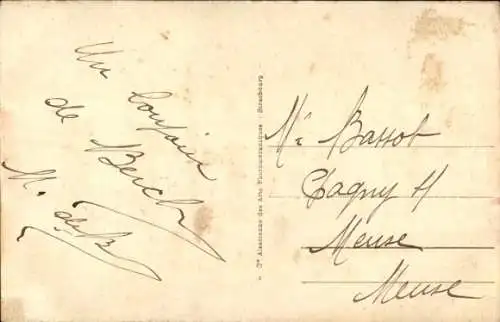 Un bonjour
de Berck
M. de B
Cie Alsacienne des Arts Photomécaniques - Strasbourg
Mr Bassot
Pagny s/
Meuse
Meuse